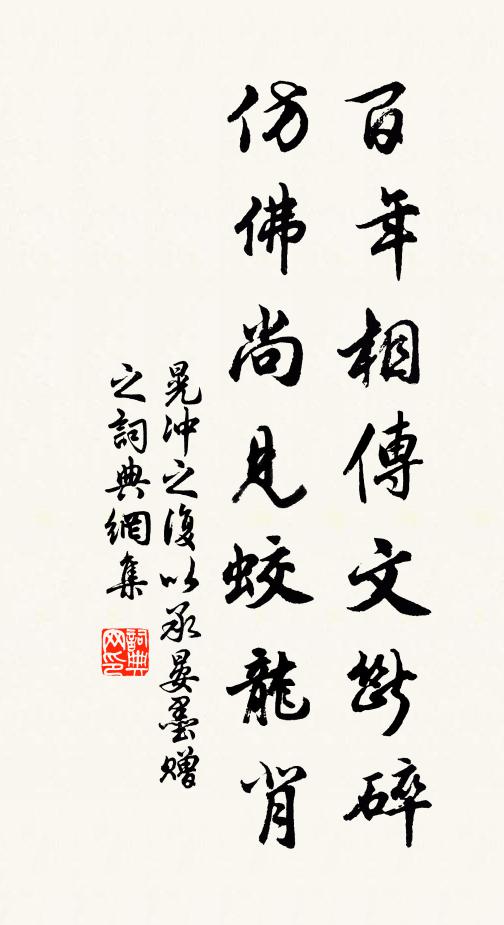 百年相傳文斷碎
仿佛尚見蛟龍背
晁冲之復以承晏墨贈
之詞典網集
詞典
网印